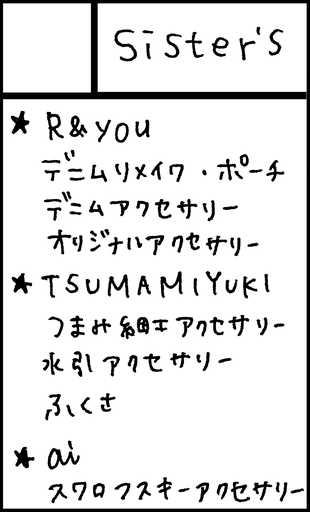 Sister's
★ R&YOU
デニムリメイク・ポーチ
デニムアクセサリー
オリジナルアクセサリー
★ TSUMAMIYUKI
つまみ細工アクセサリー
水引アクセサリー
ふくさ
★ ai
スワロフスキーアクセサリー